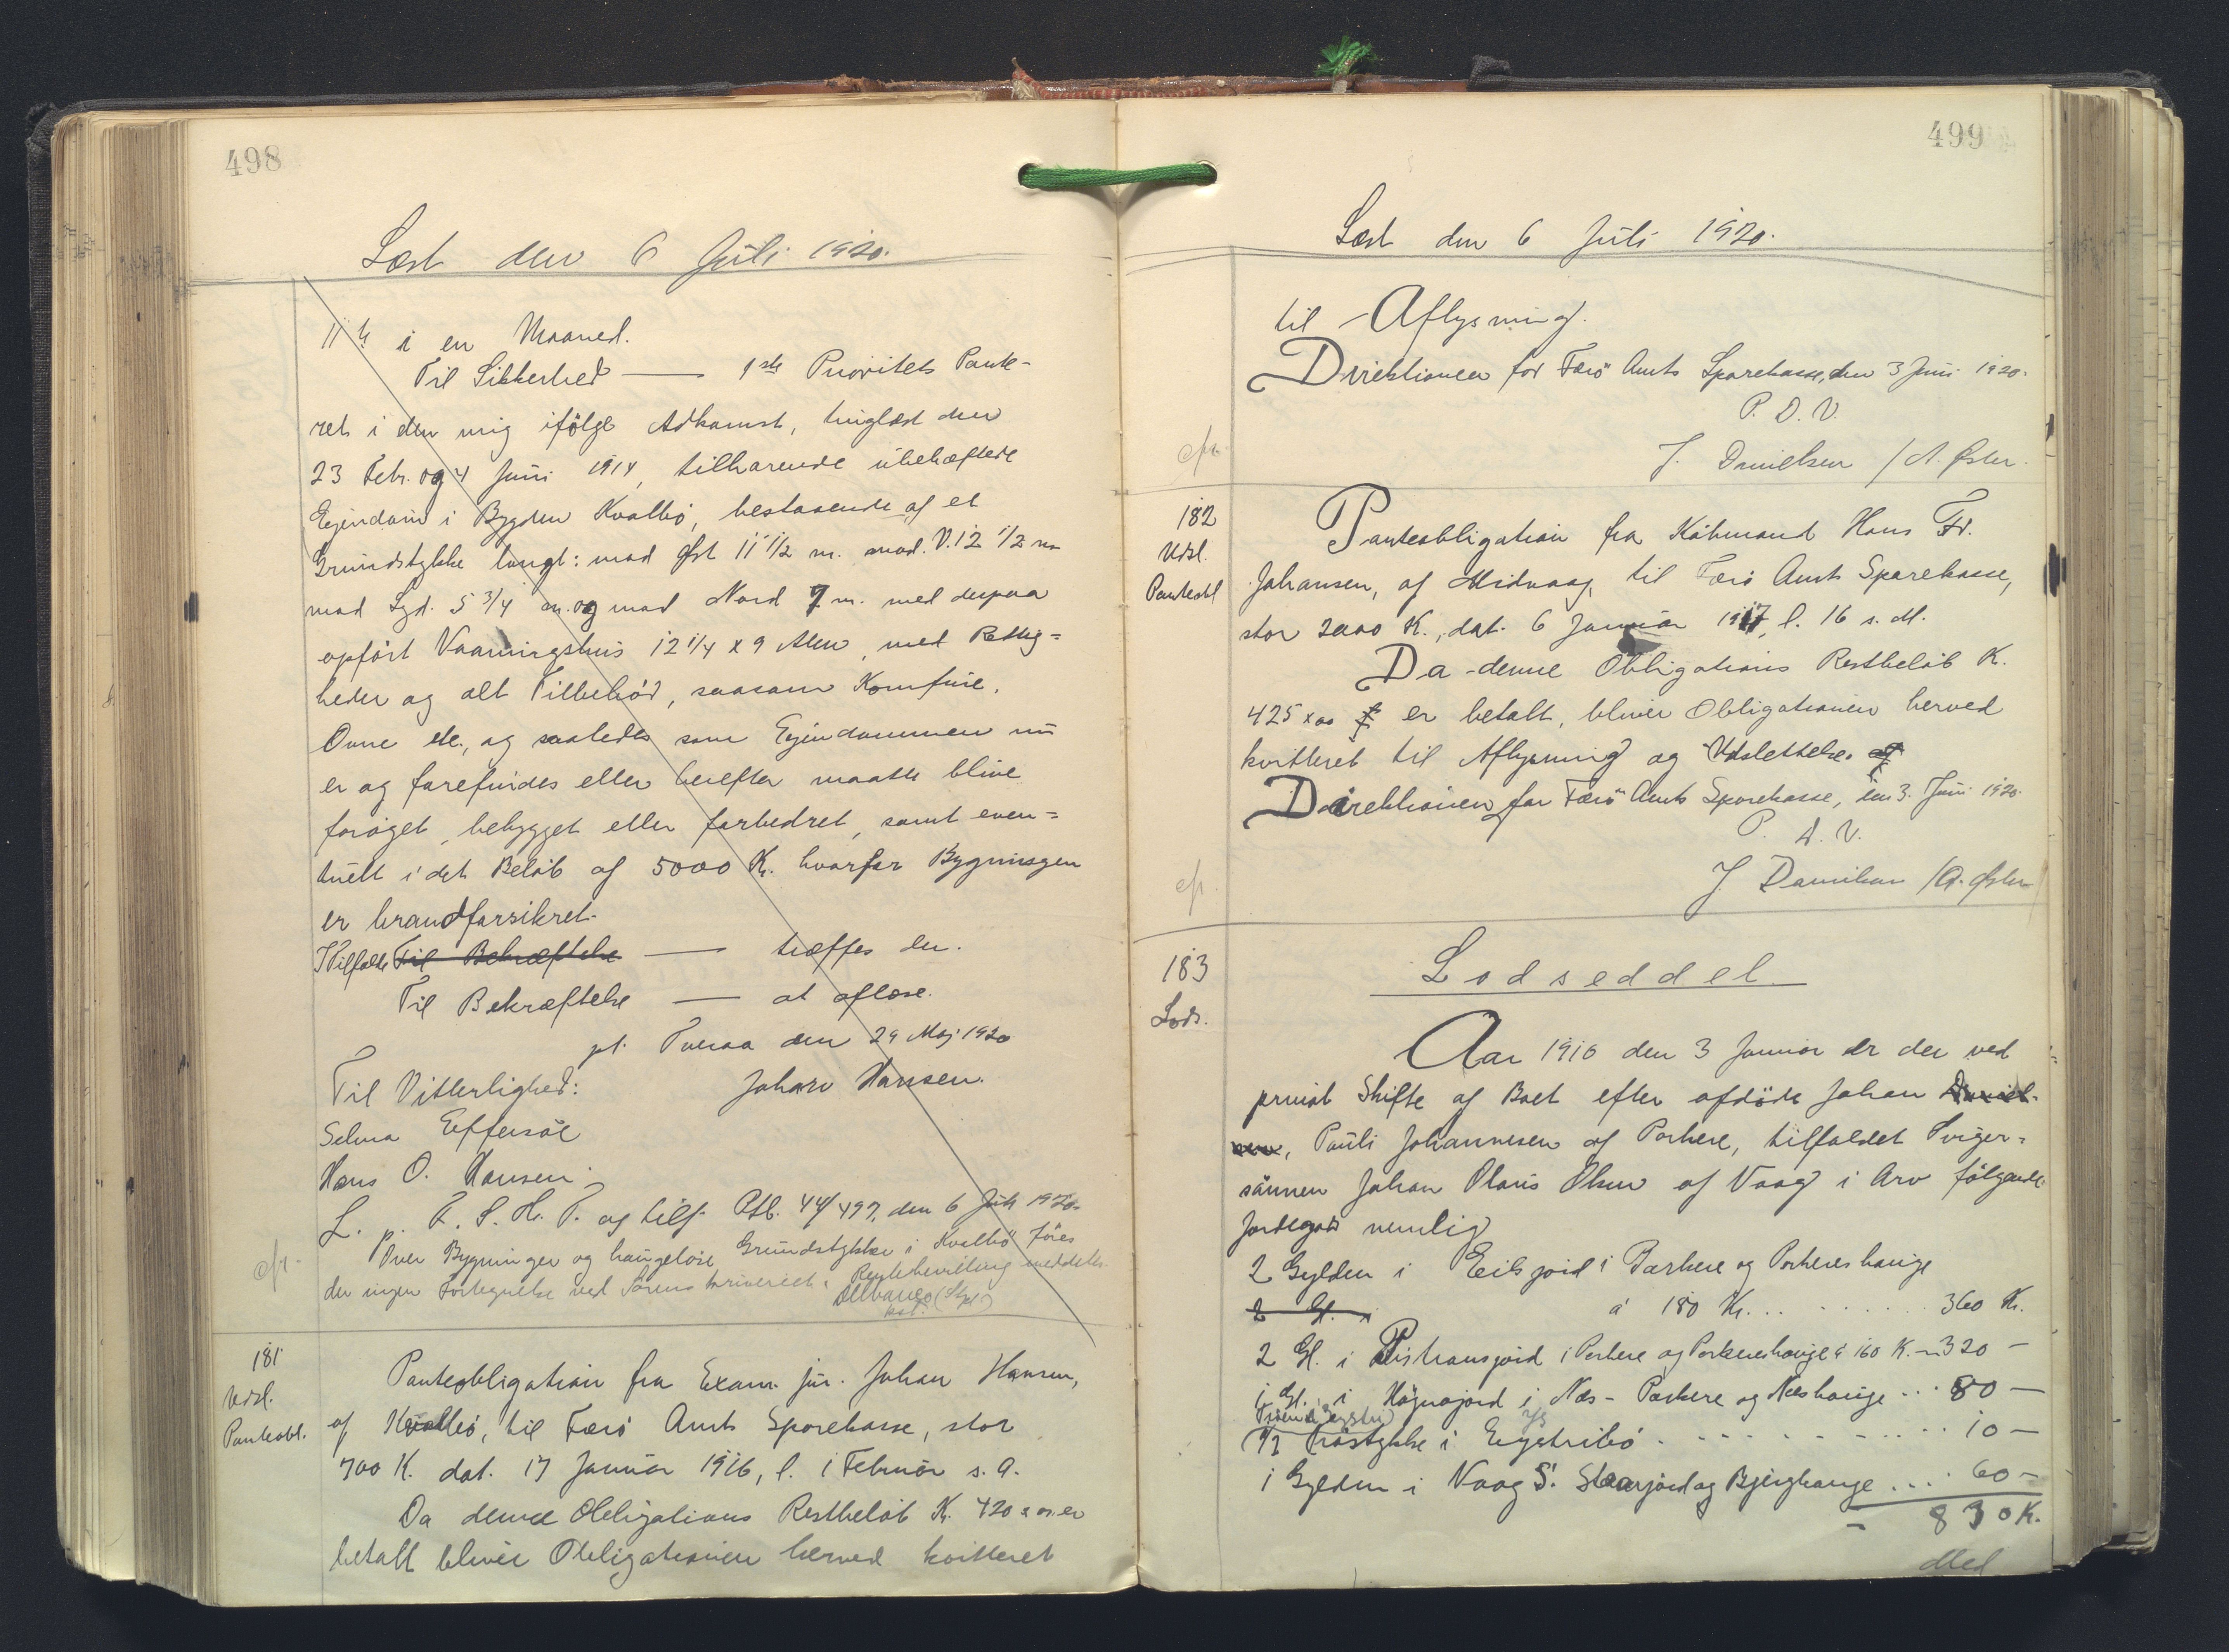 498
Læst den 6 Juli 1920.
11 te i en Maaned.
Til Sikkerhed — 1ste Prioritets Pante-
ret i den mig ifölge Adkomst, tinglæst den
23 Febr. og 4 Juni 1914, tilhørende ubehæftede
Ejendom i Bygden Kvalbö, bestaaende af et
Grundstykke langt: mod Øst 11 1/2 m. mod. V. 12 1/2 m
mod Syd. 5 3/4 m. og mod Nord 7 m. med derpaa
opfört Vaaningshus 12 1/4 x 9 Alen, med Rettig=
heder og alt Tilbehör, saasom Komfur,
Ovne etc., og saaledes som Ejendommen nu
er og forefindes eller herefter maatte blive
foröget, bebygget eller forbedret, samt even=
tuelt i det Belöb af 5000 Kr. hvorfor Bygningen
er brandforsikret.
I Tilfælde Til Bekræftelse — træffes den.
Til Bekræftelse — at aflæse.
pt. Tveraa den 29 Maj 1920
Til Vitterlighed: Johan Hansen.
Selma Effersöe
Hans O. Hansen.
L. p. F. S. H. T. og tilf. Ptb. 44/497, den 6 Juli 1920.
Over Bygninger og haugelöse Grundstykker i Kvalbö föres
der ingen Fortegnelse ved Sorenskriveriet.
cfr.
181
Udsl.
Panteobl.
Panteobligation fra Exam. jur. Johan Hansen,
af Kvalbö, til Færö Amts Sparekasse, stor
700 K. dat. 17 Januar 1916, l. 1 Februar s. A.
Da denne Obligations Restbelöb K. 420 x oo er
betalt bliver Obligationen herved kvitteret
499
Læst den 6 Juli 1920.
til Aflysning.
Direktionen for Færö Amts Sparekasse, den 3 Juni 1920.
P. D. V.
J. Danielsen / A. Øster.
cfr.
182
Udsl.
Panteobl
Panteobligation fra Köbmand Hans Fr.
Johansen, af Midvaag, til Færö Amts Sparekasse,
stor 2000 K., dat. 6 Januar 1917, l. 16 s. M.
Da denne Obligations Restbelöb K.
425 x oo er betalt, bliver Obligationen herved
kvitteret til Aflysning og Udslettelse af
Direktionen for Færö Amts Sparekasse, den 3. Juni 1920.
P. D. V.
J Danielsen / A. Øster
cfr.
183
Lods.
Lodseddel.
Aar 1916 den 3 Januar er der ved
privat Skifte af Boet efter afdöde Johan Daniel-
sen, Pauli Johannesen af Porkere, tilfaldet Sviger=
sönnen Johan Olaus Olsen af Vaag i Arv fölgende
Jordegods nemlig
2 Gylden i Eilsjord i Porkere og Porkereshauge
2 Gl. á 180 Kr. . . . . . . . . . . 360 K.
2 Gl. i Kristiansjord i Porkere og Porkereshauge á 160 K. — 320 —
1 Gl. i Högnajord i Næs - Porkere og Næshauge . . . 80 —
Tröstykke i Eystribö . . . . . . . . . 10 —
1 Gylden i Vaag S. Staarjord og Bjerghauge . . . 60 —
830 K.
Med